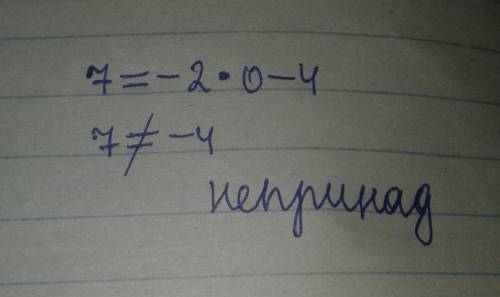 7 = -2 · 0 - 4
7 ≠ -4
непринад